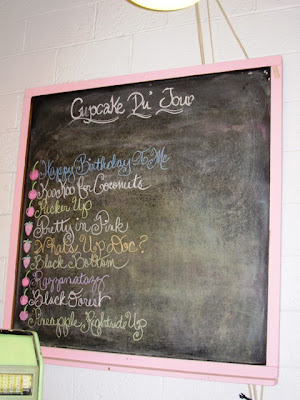 Cupcake Du' Jour
Happy Birthday To Me
KooKoo for Coconuts
Pucker Up
Pretty in Pink
What's Up Doc?
Black Bottom
Razzanataz
Black Forest
Pineapple Rightside Up